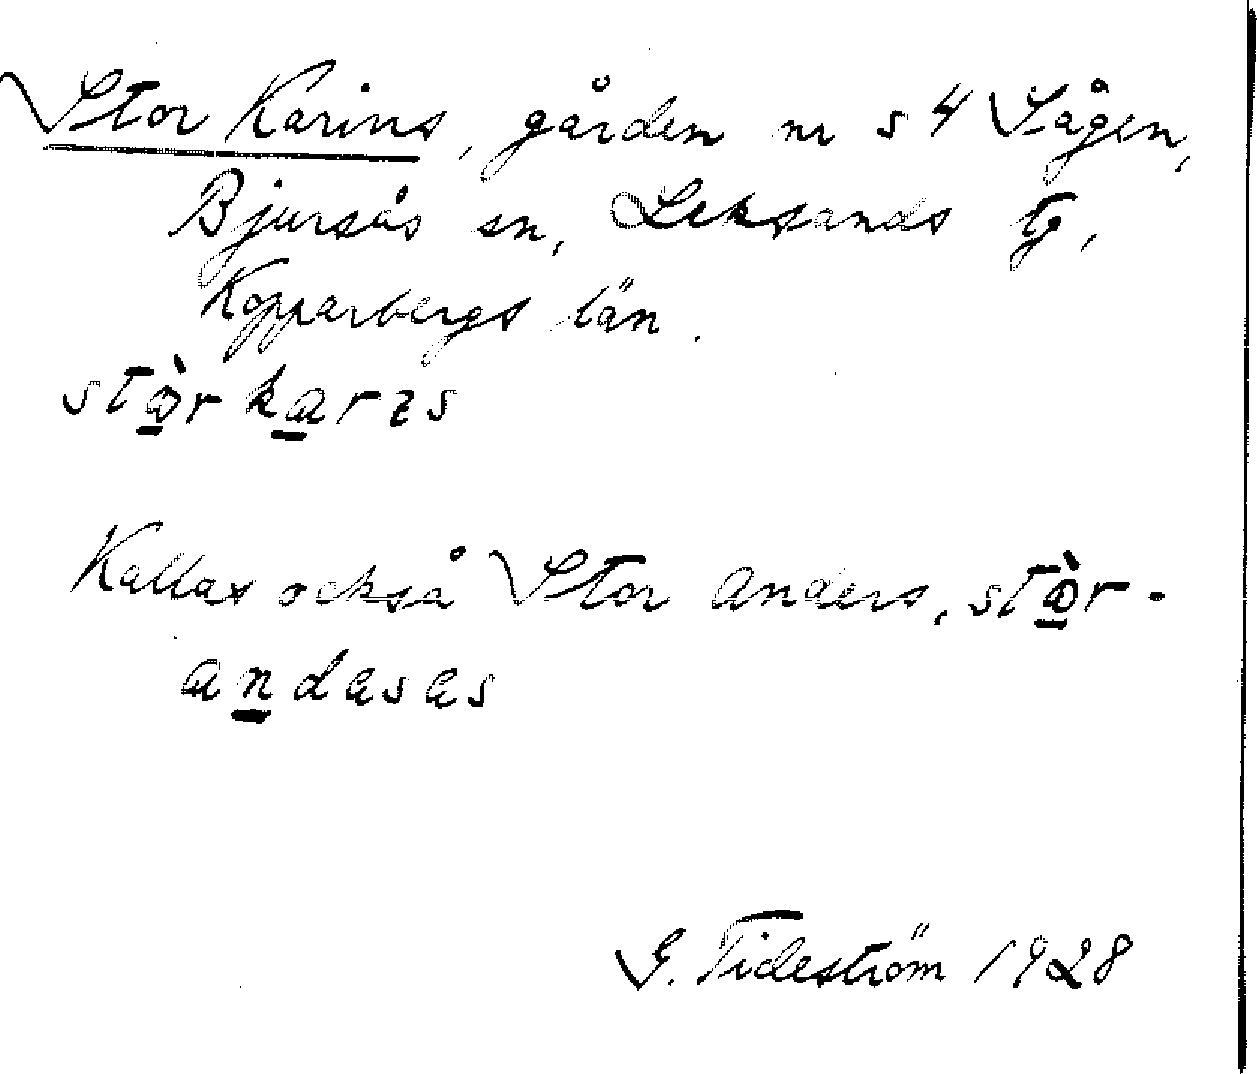 Stor Karins, gården nr s 4 Sågen,
Bjursås sn, Leksands tg,
Kopparbergs län.
stὰr karɩs
Kallas också Stor Anders, stὰr-
andəsəs
G. Tideström 1928